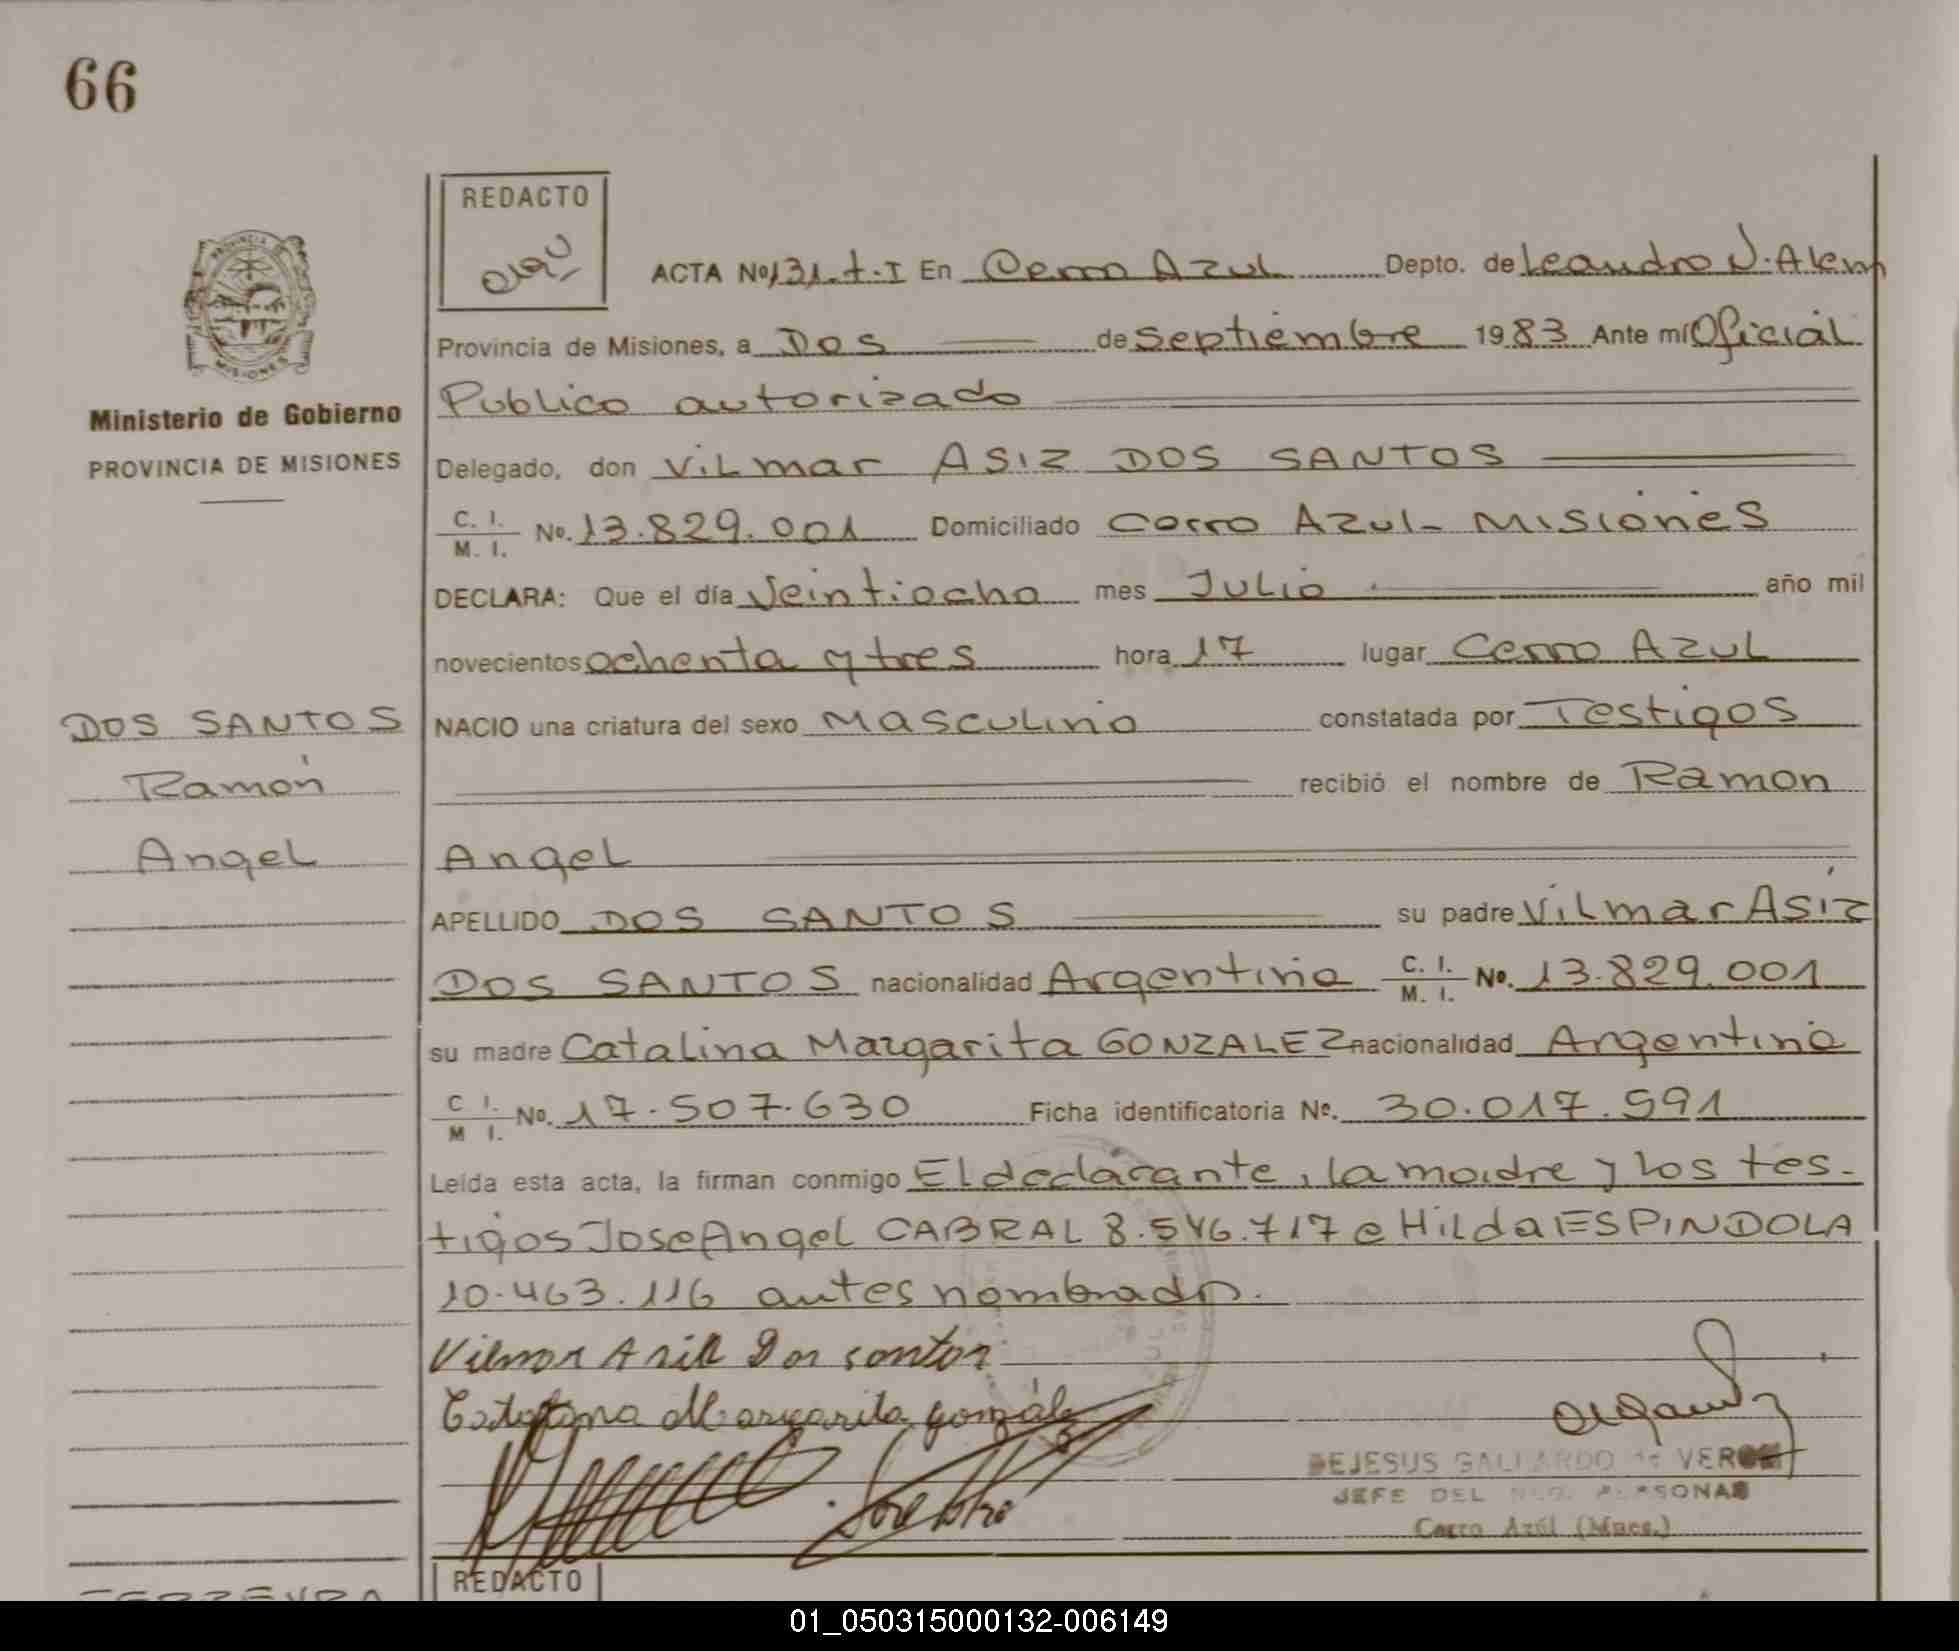 66
REDACTO
PROVINCIA DE
MISIONES
ACTA No 131. t. I En Cerro Azul Depto. de Leandro N. Alem
Provincia de Misiones, a Dos de Septiembre 1983 Ante mí Oficial
Publico autorizado
Ministerio de Gobierno
PROVINCIA DE MISIONES
Delegado, don ViLmar ASIZ DOS SANTOS
C. I. / M. I. No. 13.829.001 Domiciliado Cerro AZUL - MISIONES
DECLARA: Que el día Veintiocho mes JULIO año mil
novecientos ochenta y tres hora 17 lugar Cerro AZUL
NACIO una criatura del sexo MASCULINO constatada por Testigos
recibió el nombre de Ramon
Angel
DOS SANTOS
Ramón
Angel
APELLIDO DOS SANTOS su padre ViLmar Asiz
DOS SANTOS nacionalidad Argentina C. I. / M. I. No. 13.829.001
su madre Catalina Margarita GONZALEZ nacionalidad Argentina
C I. / M I. No. 17.507.630 Ficha identificatoria No. 30.017.591
Leída esta acta, la firman conmigo El declarante, la madre y los tes-
tigos Jose Angel CABRAL 8.546.717 e Hilda ESPINDOLA
10.463.116 antes nombrado.
Dos santos
Margarita González
DEJESUS GALLARDO de VERON
JEFE DEL REG. PERSONAS
Cerro Azúl (Mnes.)
REDACTO
FERREYRA
01_050315000132-006149